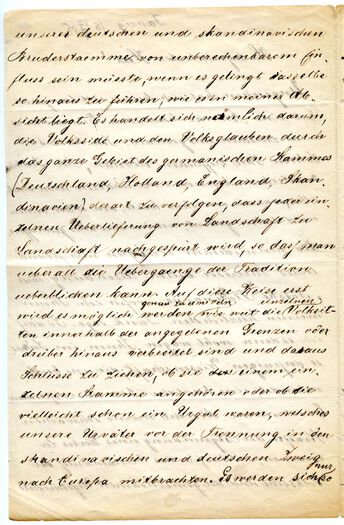 unserer deutschen und skandinavischen
Bruderstaemme von unberechenbarem Ein-
fluss sein müsste, wenn es gelingt dasselbe
so hinaus zu führen, wie es in meiner Ab-
sicht liegt. Es handelt sich nämlich darum,
die Volkssitte und den Volksglauben durch
das ganze Gebiet des germanischen Stammes
(Deutschland, Holland, England, Skan-
dinavien) derart zu verfolgen, dass jeder ein-
zelnen Ueberlieferung von Landschaft zu
Landschaft nachgespürt wird, so dass man
ueberall die Uebergaenge der Tradition
ueberblicken kann. Auf diese Weise erst
wird es möglich werden, genau zu ermitteln wie weit die einzelnen
innerhalb der angegebenen Grenzen oder
drüber hinaus verbreitet sind und daraus
Schlüsse zu ziehen, ob sie einem ein-
zelnen Stamme angehören oder ob sie
vielleicht schon ein Urgut waren, welches
unsere Urväter vor der Trennung in den
skandinavischen und deutschen Zweig
nach Europa mitbrachten. Es werden sich nur so